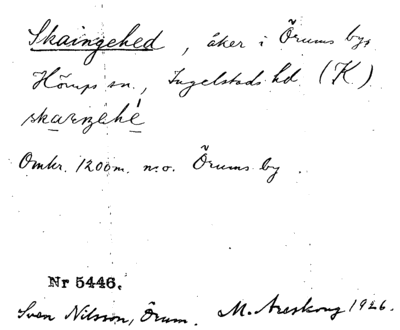 Skaingehed, åker i Örums by,
Hörups sn., Ingelstads hd. (K)
Omkr. 1200 m. n.o. Örums by.
Nr 5446.
Sven Nilsson, Örum. M. Areskoug 1926.